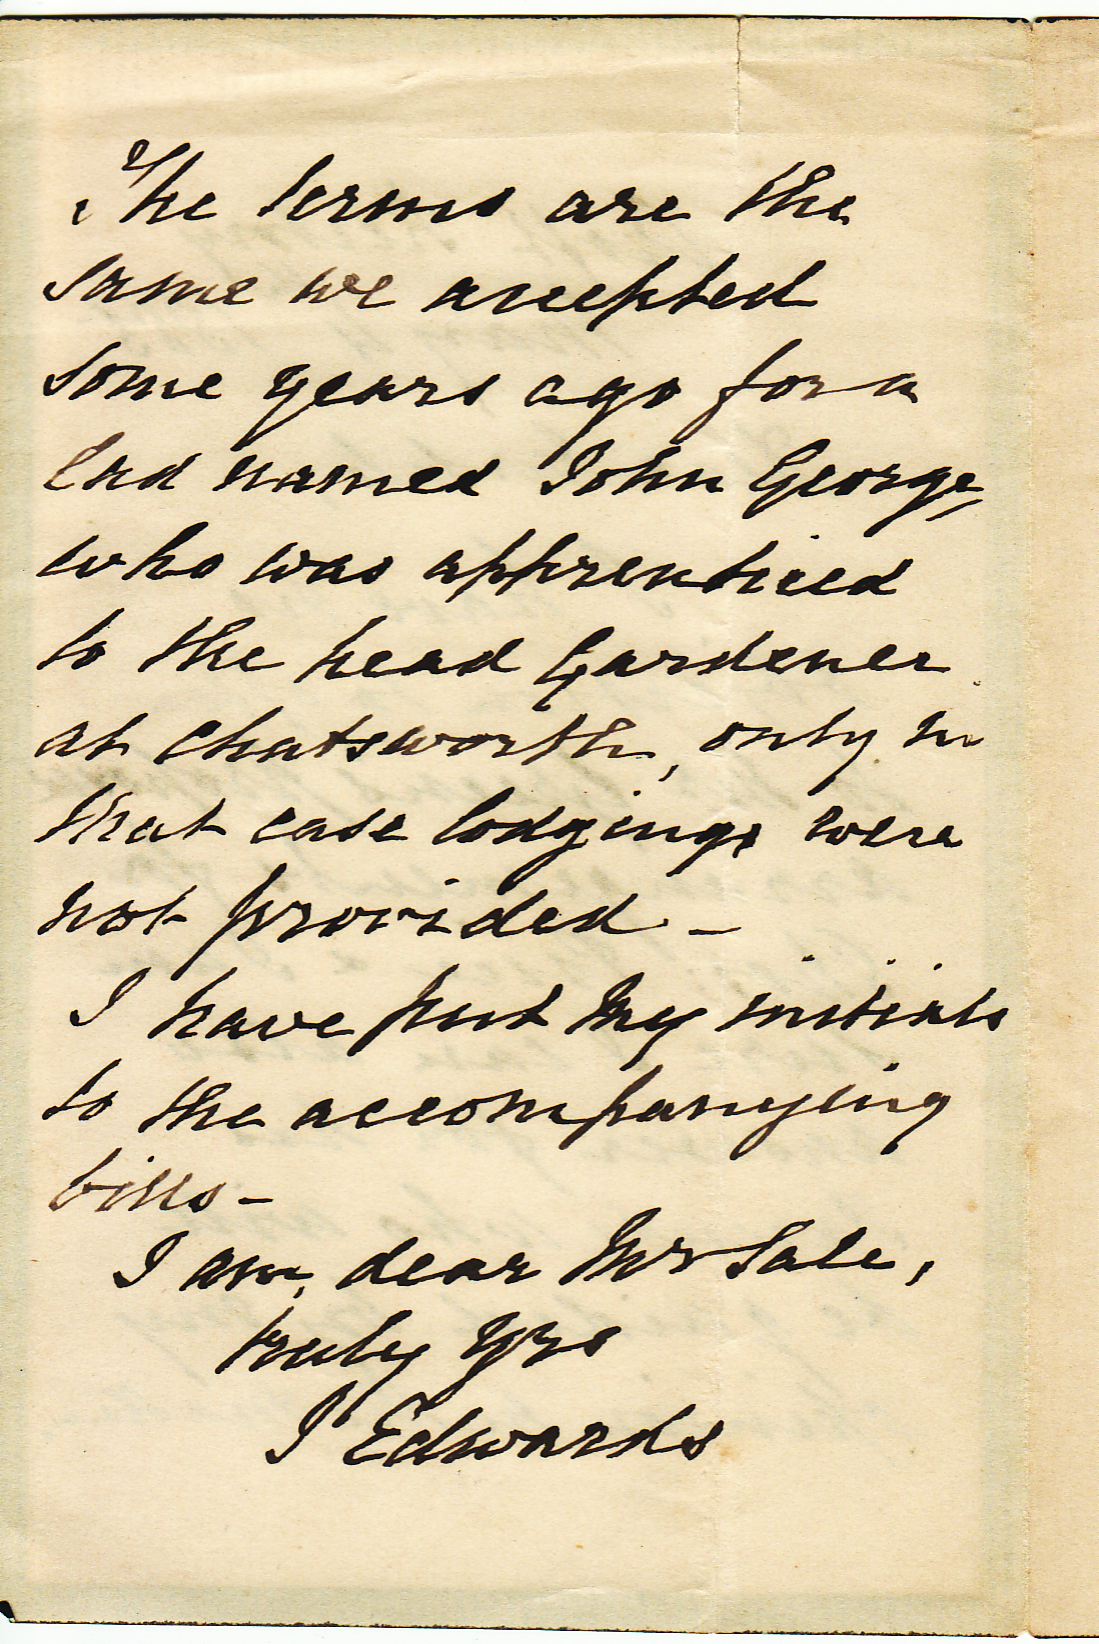 The terms are the
same we accepted
some years ago for a
lad named John George,
who was apprenticed
to the head Gardener
at Chatsworth, only in
that case lodgings were
not provided -
I have put my initials
to the accompanying
bills -
I am, dear Mr Sale,
truly yrs
J Edwards